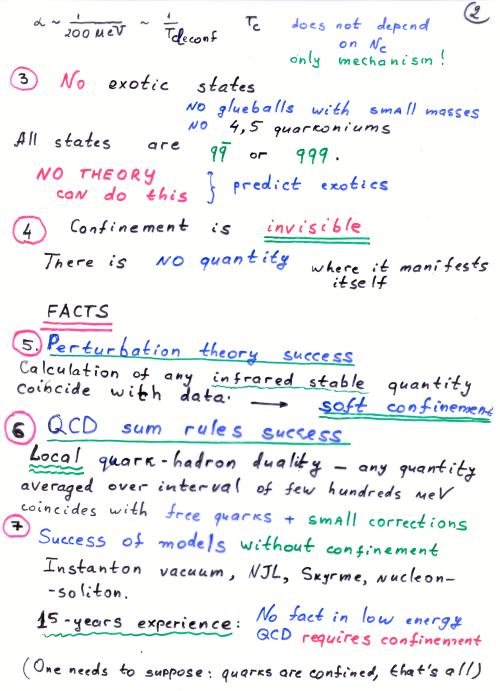 2
α ~ 1/200 MeV ~ 1/Tdeconf Tc does not depend
on Nc
only mechanism!
3 No exotic states
NO glueballs with small masses
NO 4,5 quarkoniums
All states are qq̄ or qqq.
NO THEORY
can do this } predict exotics
4 Confinement is invisible
There is NO quantity where it manifests
itself
FACTS
5. Perturbation theory success
Calculation of any infrared stable quantity
coincide with data. → soft confinement
6 QCD sum rules success
Local quark-hadron duality – any quantity
averaged over interval of few hundreds MeV
coincides with free quarks + small corrections
7 Success of models without confinement
Instanton vacuum, NJL, Skyrme, nucleon-
-soliton.
15-years experience: No fact in low energy
QCD requires confinement
(One needs to suppose: quarks are confined, that's all)